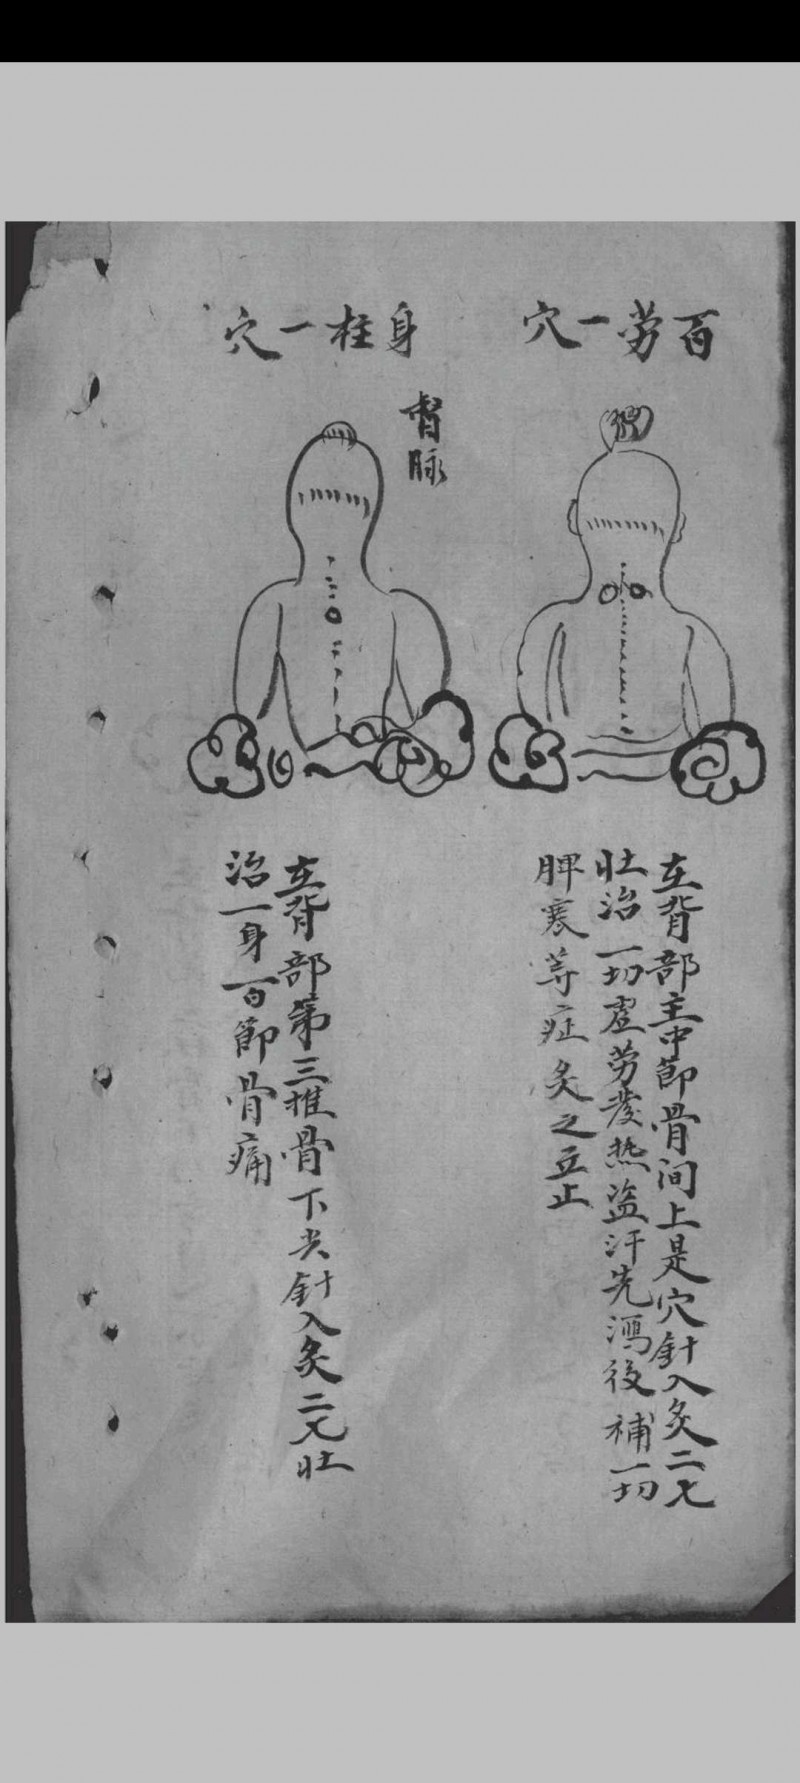 百劳一穴
在背部主中節骨间上是穴針入灸二七
壮治一切虚劳發热盗汗先瀉後補一切
脾寒等症灸之立止
身柱一穴
督脉
在背部第三椎骨下尖針入灸二七壮
治一身百節骨痛